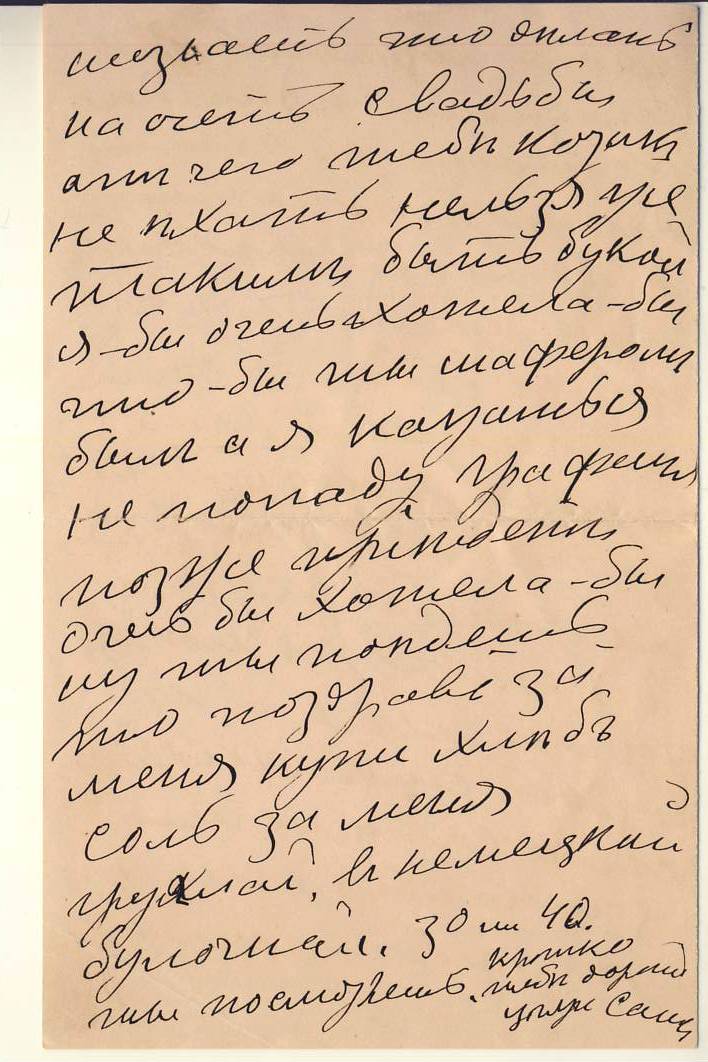 что дѣлать
на счетъ свадьбы
чего тебѣ
не ѣхать нельзя уже
такимъ быть букой
я-бы очень хотела-бы
что-бы ты шаферомъ
былъ а я кажеться
не попаду графиня
позже приѣдетъ
очень бы хотела-бы
ну ты поѣдешь
то поздравь за
меня купи хлѣбъ
соль за меня
в немецкай
булочнай. 30 ил 40.
ты посмотришь. крѣпко
тебѣ дорогой
цѣлую